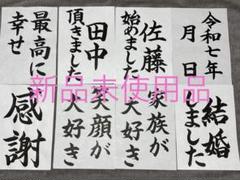 令和七年
月 日
佐藤
始めました
田中
頂きました
最高に
幸せ
新品未使用品
結婚
しました
家族が
大好き
笑顔が
大好き
感謝